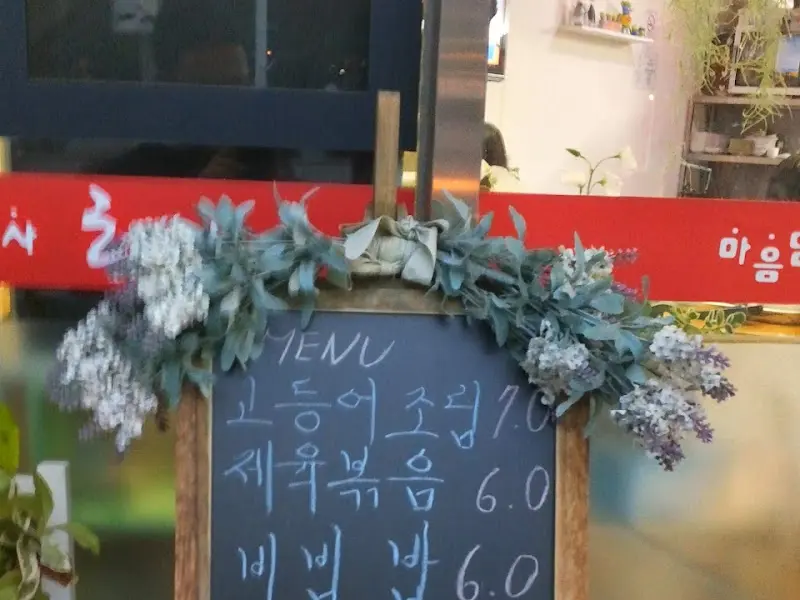 사
마음
MENU
고등어 조림 7.0
제육볶음 6.0
비빔밥 6.0